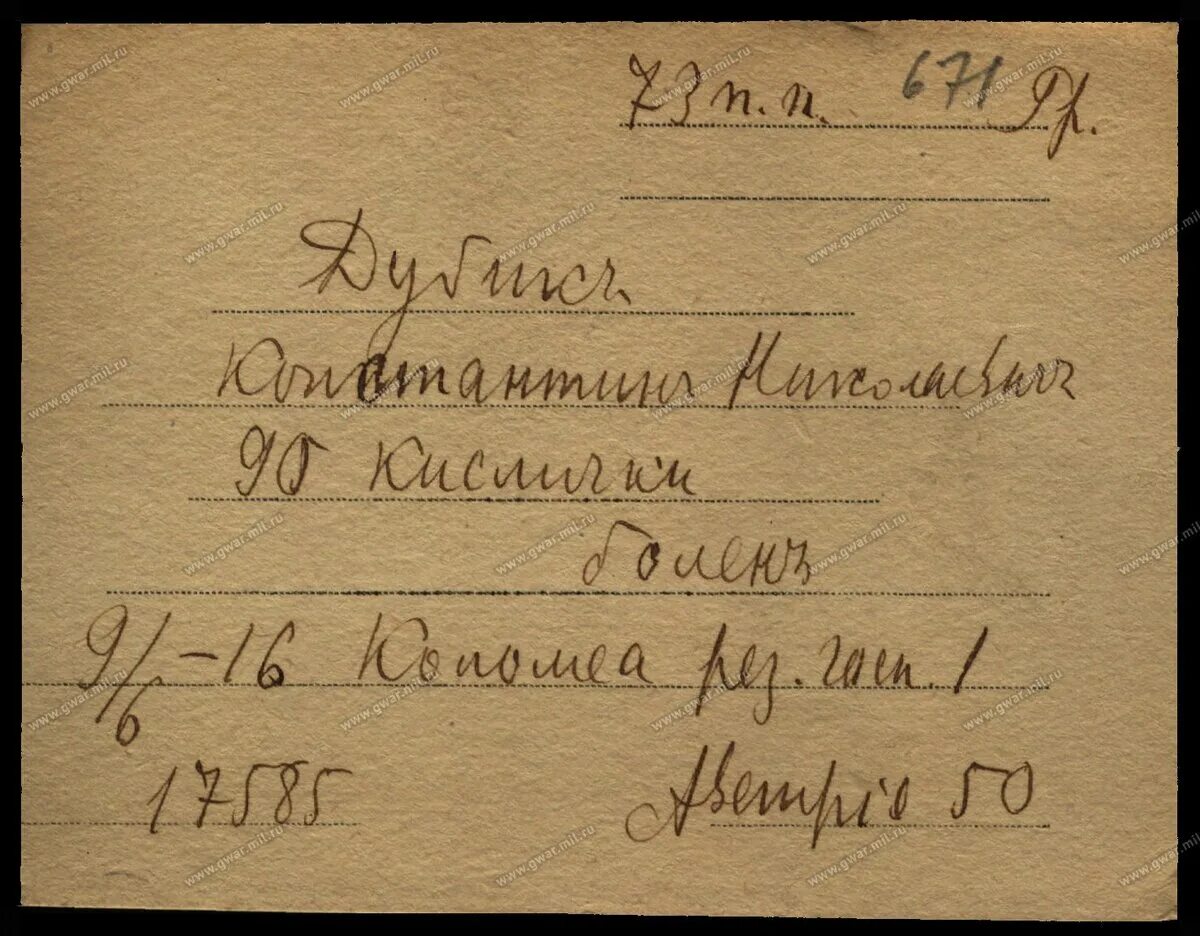 73 п.п. 671 Гр.
Дубикъ
Константинъ Николаевичъ
Кислички
боленъ
9/6 – 16 Коломеа рез. госп. 1
17585 Австрія 50
www.gwar.mil.ru